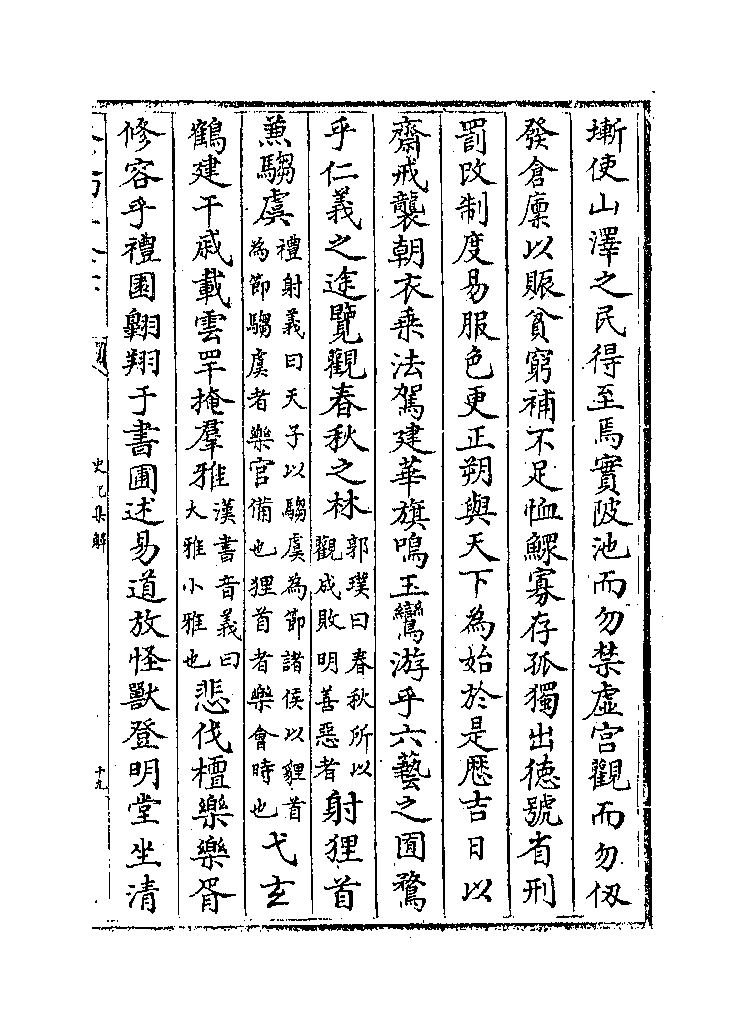 塹使山澤之民得至焉實陂池而勿禁虛宫觀而勿仭
發倉廩以賑貧窮補不足恤鰥寡存孤獨出德號省刑
罰改制度易服色更正朔與天下為始於是歴吉日以
齋戒襲朝衣乗法駕建華旗鳴玉鸞游乎六藝之囿鶩
乎仁義之途覽觀春秋之林郭璞曰春秋所以觀成敗明善惡者射狸首
兼騶虞禮射義曰天子以騶虞為節諸侯以貍首為節騶虞者樂官備也狸首者樂會時也弋玄
鶴建干戚載雲䍐掩羣雅漢書音義曰大雅小雅也悲伐檀樂樂胥
修容乎禮園翺翔于書圃述易道放怪獸登明堂坐清
史記集解
十九